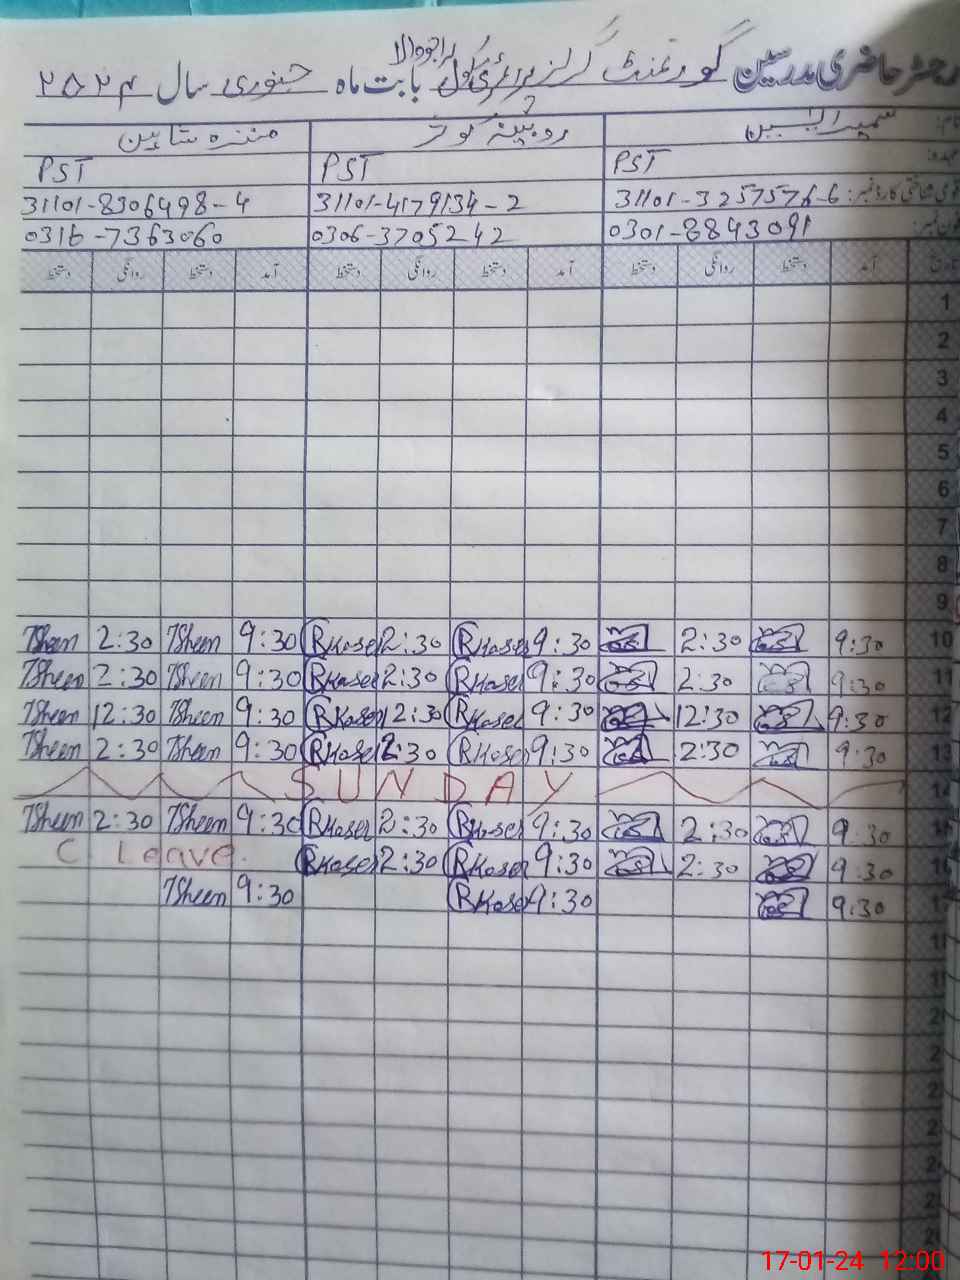 رجسٹر حاضری مدرسین گورنمنٹ گرلز پرائمری سکول راجووالا بابت ماہ جنوری سال ۲۰۲۴
نام: سمیرا یٰسین روبینہ کوثر منزہ شاہین
عہدہ: PST PST PST
قومی شناختی کارڈ نمبر: 31101-3257576-6 31101-4179134-2 31101-8306498-4
فون نمبر: 0301-8843091 0306-3705242 0316-7363060
تاریخ آمد دستخط روانگی دستخط آمد دستخط روانگی دستخط آمد دستخط روانگی دستخط
1
2
3
4
5
6
7
8
9
10 9:30 2:30 9:30 RKoser 2:30 RKoser 9:30 TSheen 2:30 TSheen
11 9:30 2:30 9:30 RKoser 2:30 RKoser 9:30 TSheen 2:30 TSheen
12 9:30 12:30 9:30 RKoser 12:30 RKoser 9:30 TSheen 12:30 TSheen
13 9:30 2:30 9:30 RKoser 2:30 RKoser 9:30 TSheen 2:30 TSheen
14 SUNDAY
15 9:30 2:30 9:30 RKoser 2:30 RKoser 9:30 TSheen 2:30 TSheen
16 9:30 2:30 9:30 RKoser 2:30 RKoser C Leave.
17 9:30 9:30 RKoser 9:30 TSheen
17-01-24 12:00